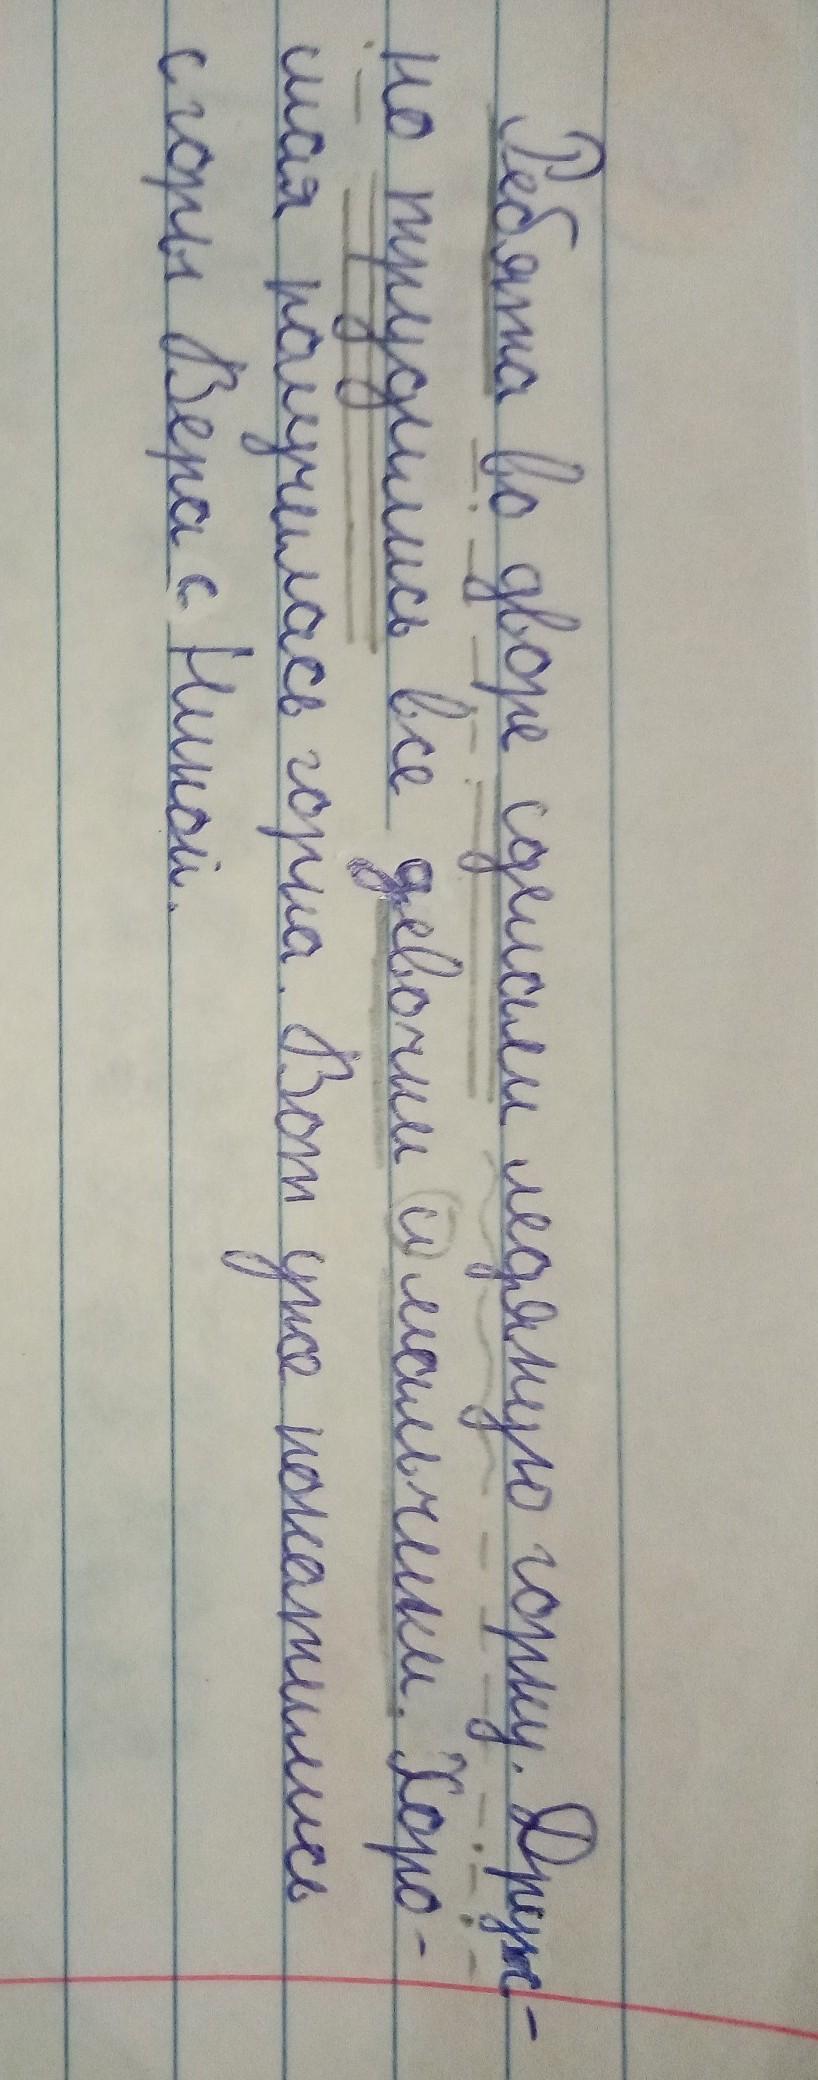 Ребята во дворе сделали ледяную горку. Друж-
но трудились все девочки и мальчики. Хоро-
шая получилась горка. Вот уже покатились
с горы Вера с Ниной.